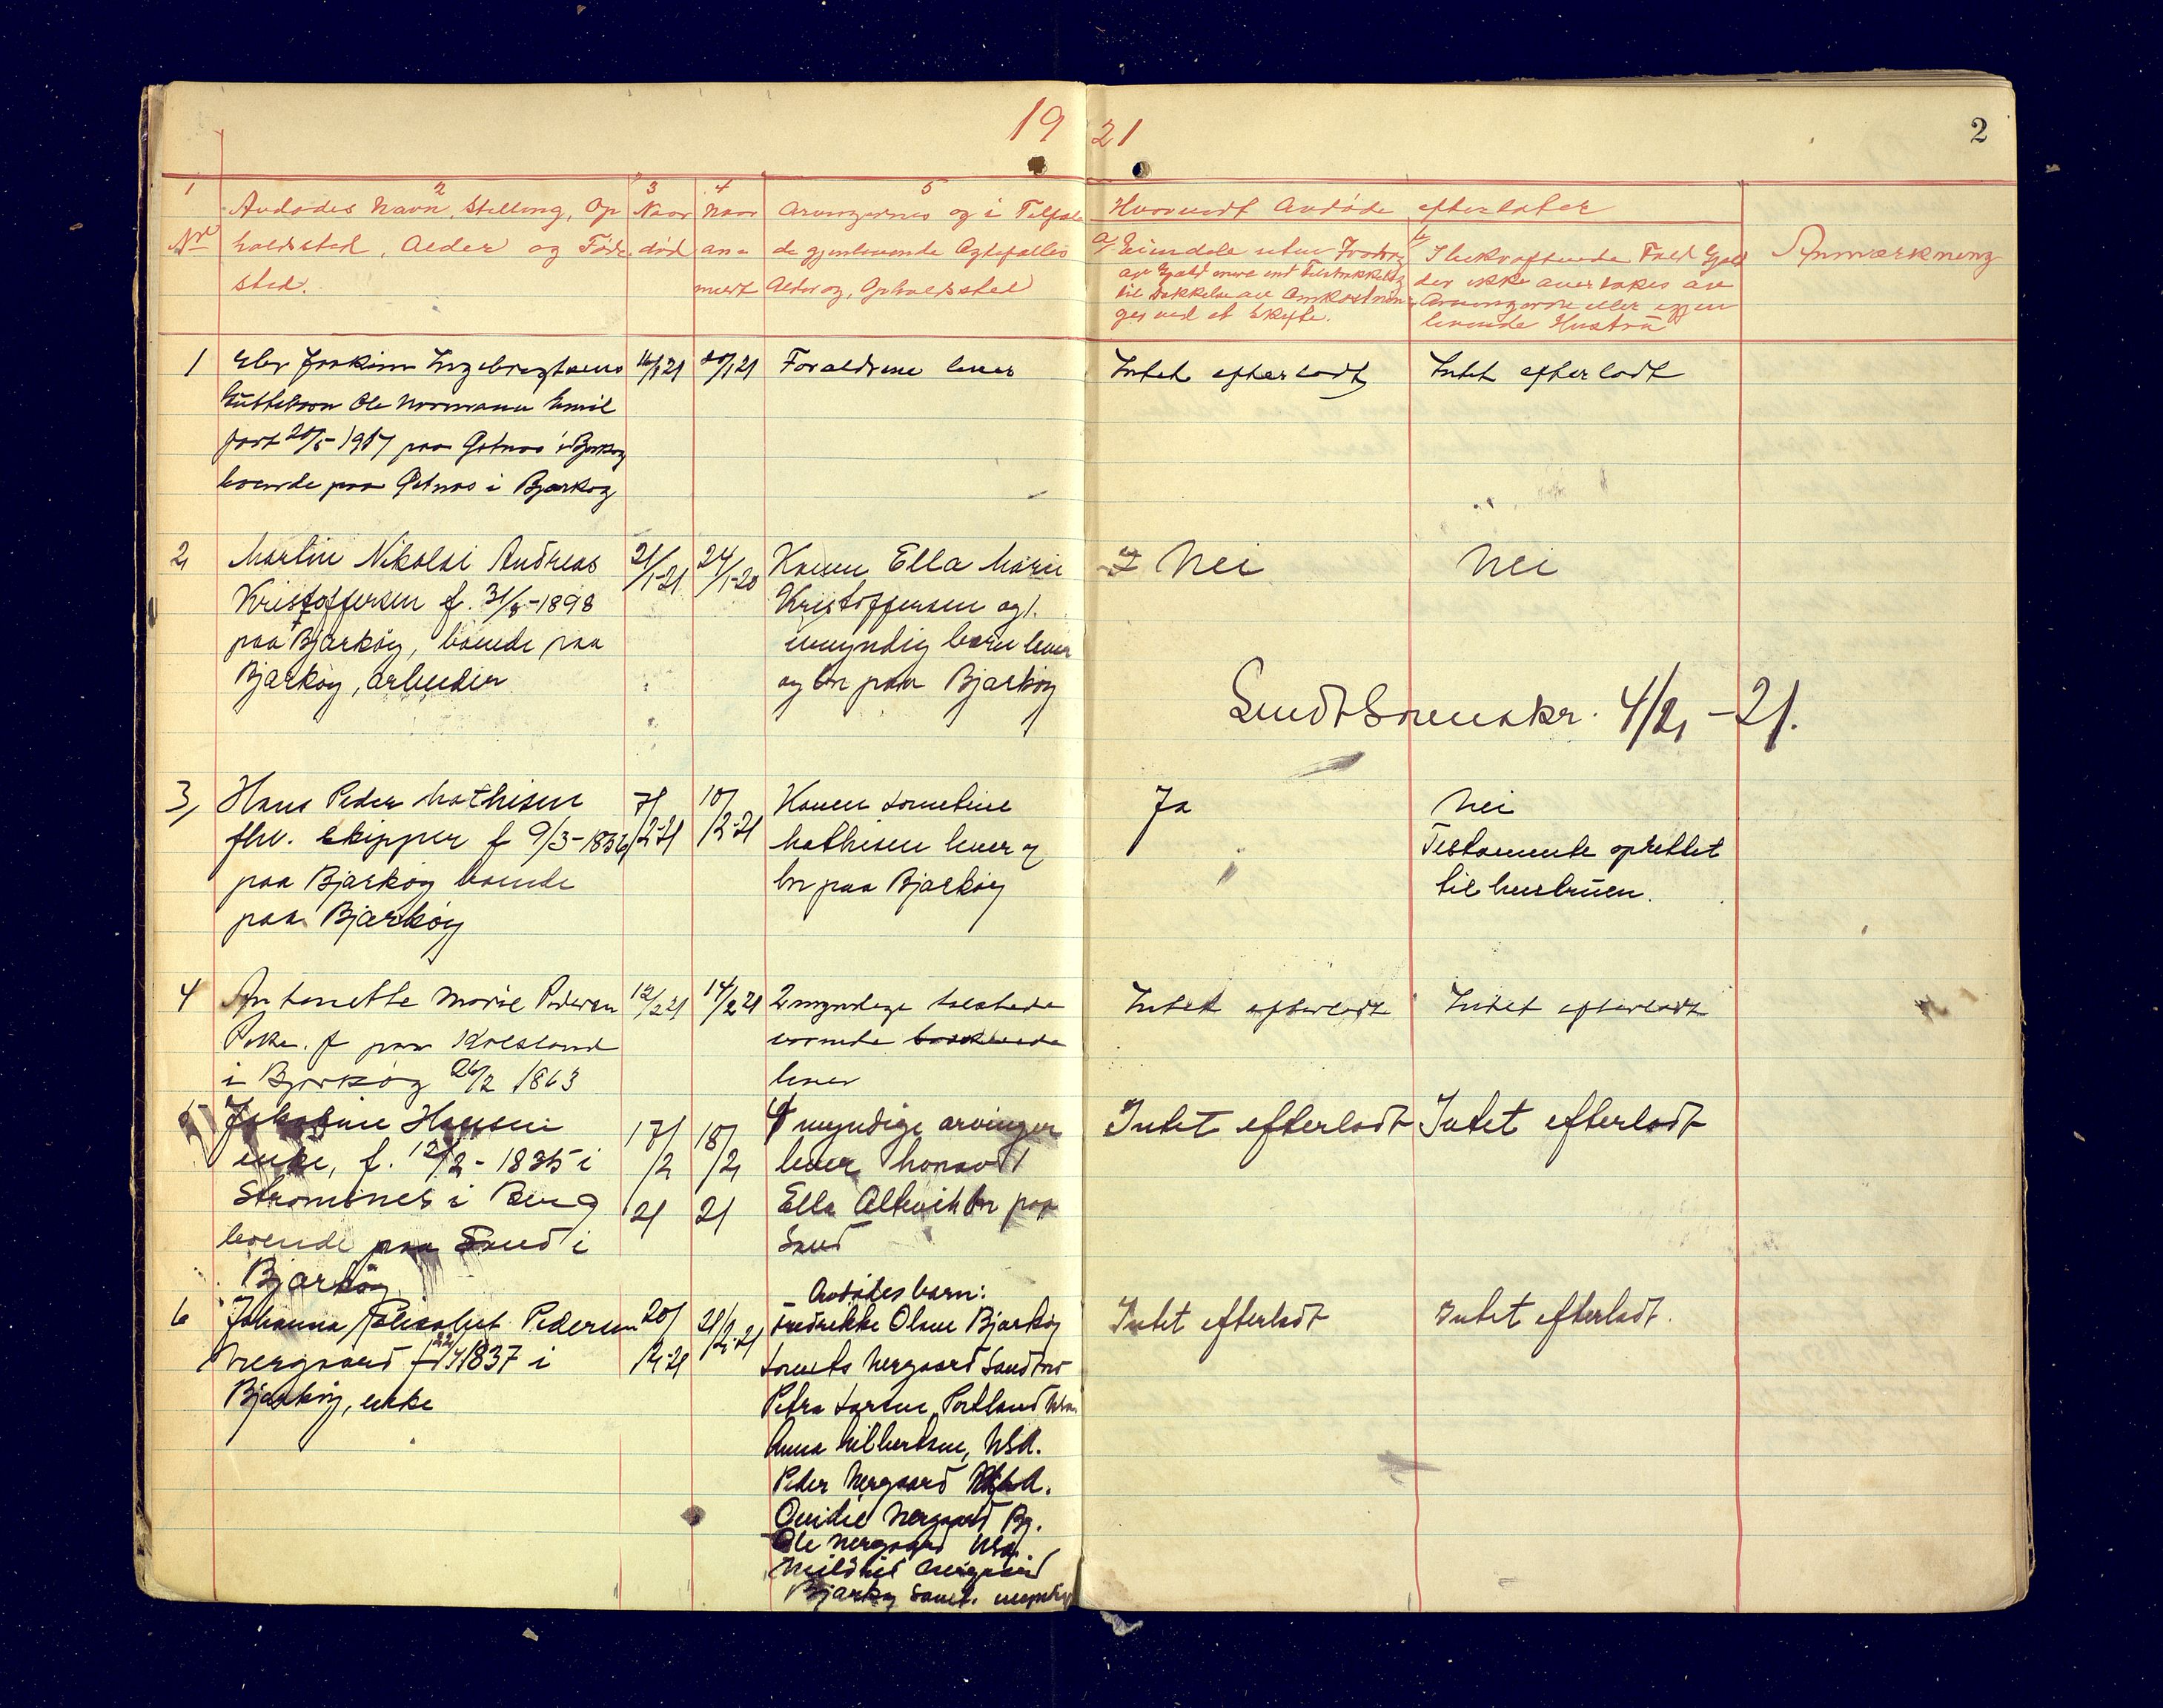 19 21
2
1
2
3
4
5
Nr
Avdødes Navn, Stilling, Op
holdssted, Alder og Føde
sted.
Naar
død
Naar
an-
meldt
Arvingernes og i Tilfæl
de gjenlevende Ægtefælles
Alder og Opholdssted
Hvorvidt Avdøde efterlater
a) Eiendele uten Fradrag
av Gjæld mere end tilstrækkelig
til Dækkelse av Omkostnin
ger ved et Skifte.
b) I bekræftende Fald Gjæld
der ikke overtakes av
Arvingerne eller gjen
levende Hustru
Anmærkning
1
Elev Joakim Ingebrigtsens
Guttebarn Ole Normann Emil
født 20/5-1917 paa i Bjarkøy
boende paa i Bjarkøy
16/1 21
20/1 21
Forældrene lever
Intet efterladt
Intet efterladt
2
Martin Nikolai Andreas
Kristoffersen f. 31/8-1898
paa Bjarkøy, boende paa
Bjarkøy, arbeider
21/1-21
24/1-20
Konen Ella Marie
Kristoffersen og 1
umyndig barn lever
og bor paa Bjarkøy
Nei
Nei
Sendt Sorenskr. 4/2-21.
3
Hans Peder Mathisen
fhv. skipper f 9/3-1836
paa Bjarkøy boende
paa Bjarkøy
7/2-21
10/2-21
Konen Lornetine
Mathisen lever og
bor paa Bjarkøy
Ja
Nei
Testamente oprettet
til hustruen.
4
Antonette Marie Pedersen
Pike. f paa Kolsland
i Bjarkøy 26/2 1863
12/2 21
14/2 21
2 myndige søskende
lever
Intet efterladt
Intet efterladt
5
Jakobine Hansen
enke, f. 12/2-1835 i
Strømsnes i Berg
boende paa Sand i
Bjarkøy
17/2 21
18/2 21
4 myndige arvinger
lever hvorav 1
Ella Altevik bor paa
Sand
Intet efterladt
Intet efterladt
6
Johanna Elisabet Pedersen
Nergaard f 22/4 1837 i
Bjarkøy, enke
20/2-21
21/2-21
Avdødes barn:
Fredrikke Olsen Bjarkøy
Lorents Nergaard Sandtorv
Petra Larsen, Portland Usa
Anna Gilbertsen, USA.
Peder Nergaard USA.
Ovidie Nergaard Bj.
Ole Nergaard Usa.
Mildrid Nergaard
Bjarkøy Saml. myndig
Intet efterladt
Intet efterladt.